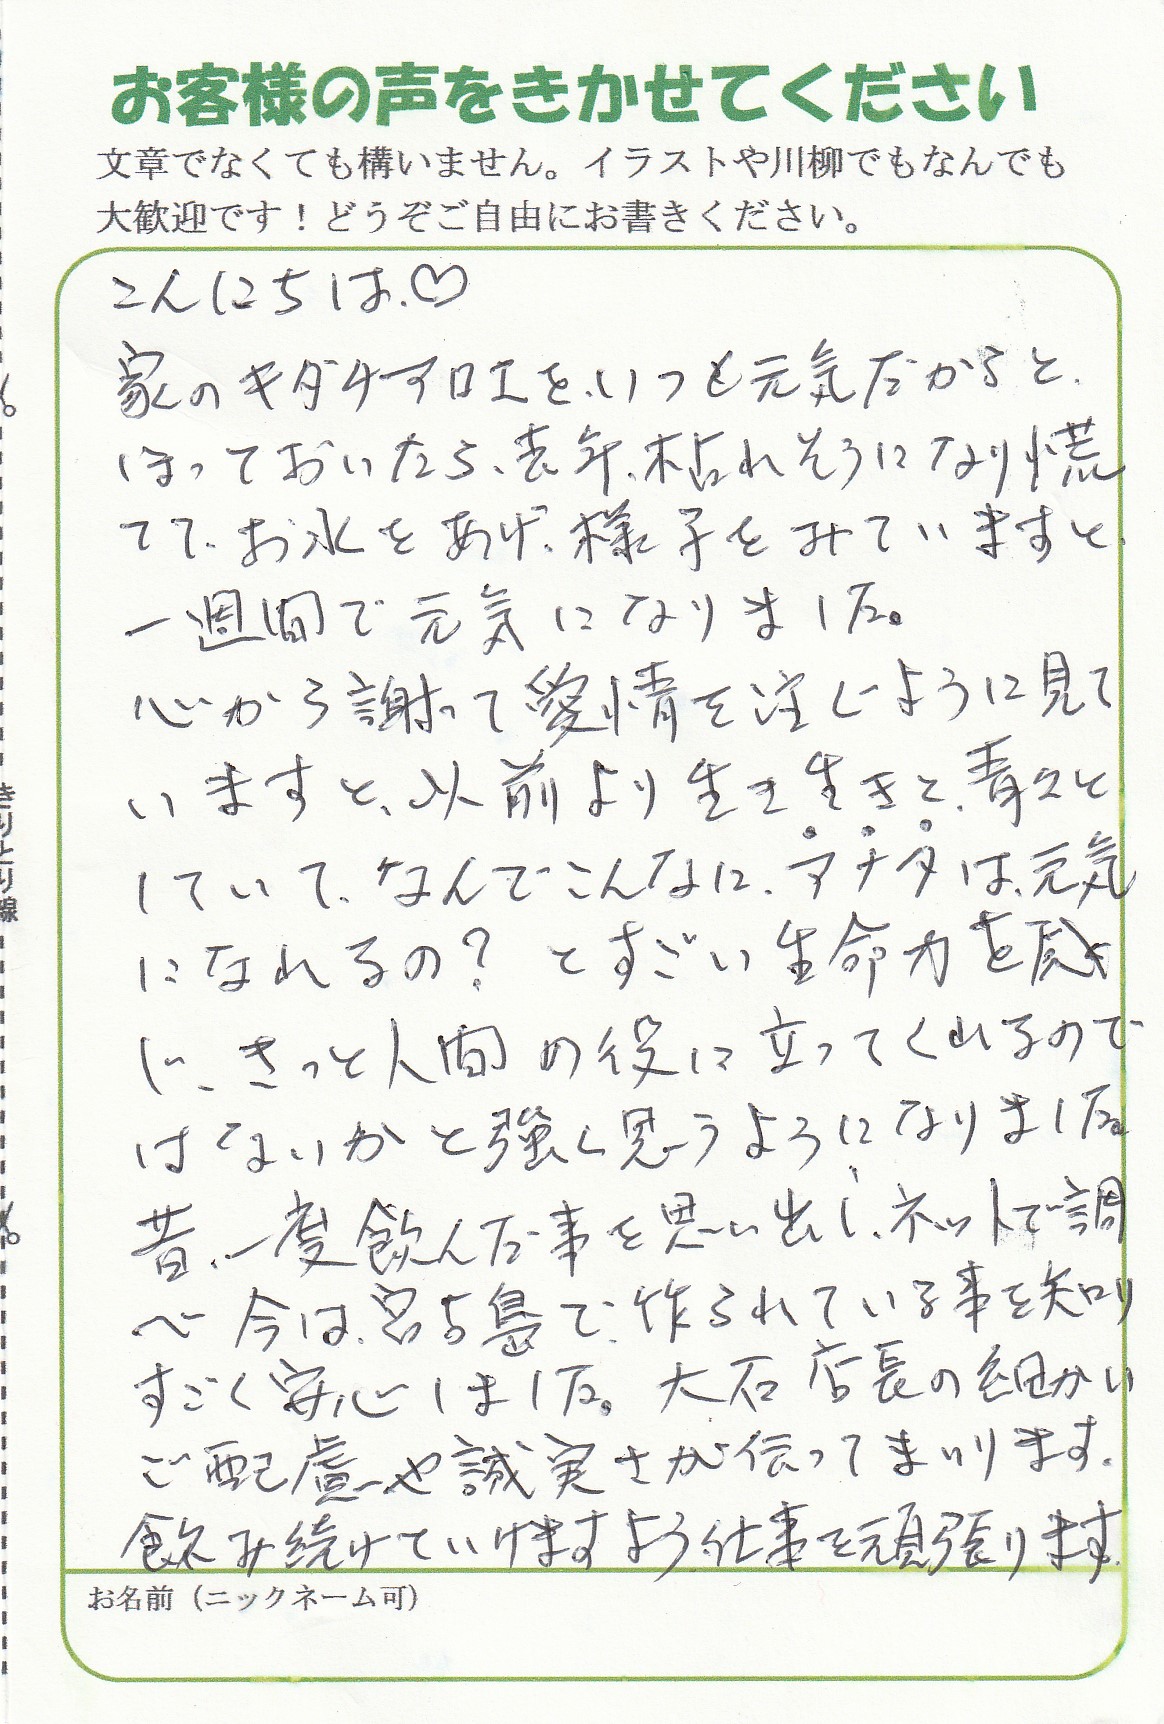 お客様の声をきかせてください
文章でなくても構いません。イラストや川柳でもなんでも
大歓迎です！どうぞご自由にお書きください。
こんにちは、♡
家のキダチアロエを、いつも元気だからと、
ほっておいたら、去年、枯れそうになり慌
てて、お水をあげ、様子をみていますと、
一週間で元気になりました。
心から謝って愛情を注ぐように見て
いますと、以前より生き生きと、青々と
していて、なんでこんなに、アナタは、元気
になれるの？とすごい生命力を感
じ、きっと人間の役に立ってくれるので
はないかと強く思うようになりました。
昔、一度飲んだ事を思い出し、ネットで調
べ今は、宮古島で、作られている事を知り
すごく安心しました。大石店長の細かい
ご配慮や誠実さが伝ってまいります。
飲み続けていけますよう仕事を頑張ります。
お名前（ニックネーム可）
きりとり線